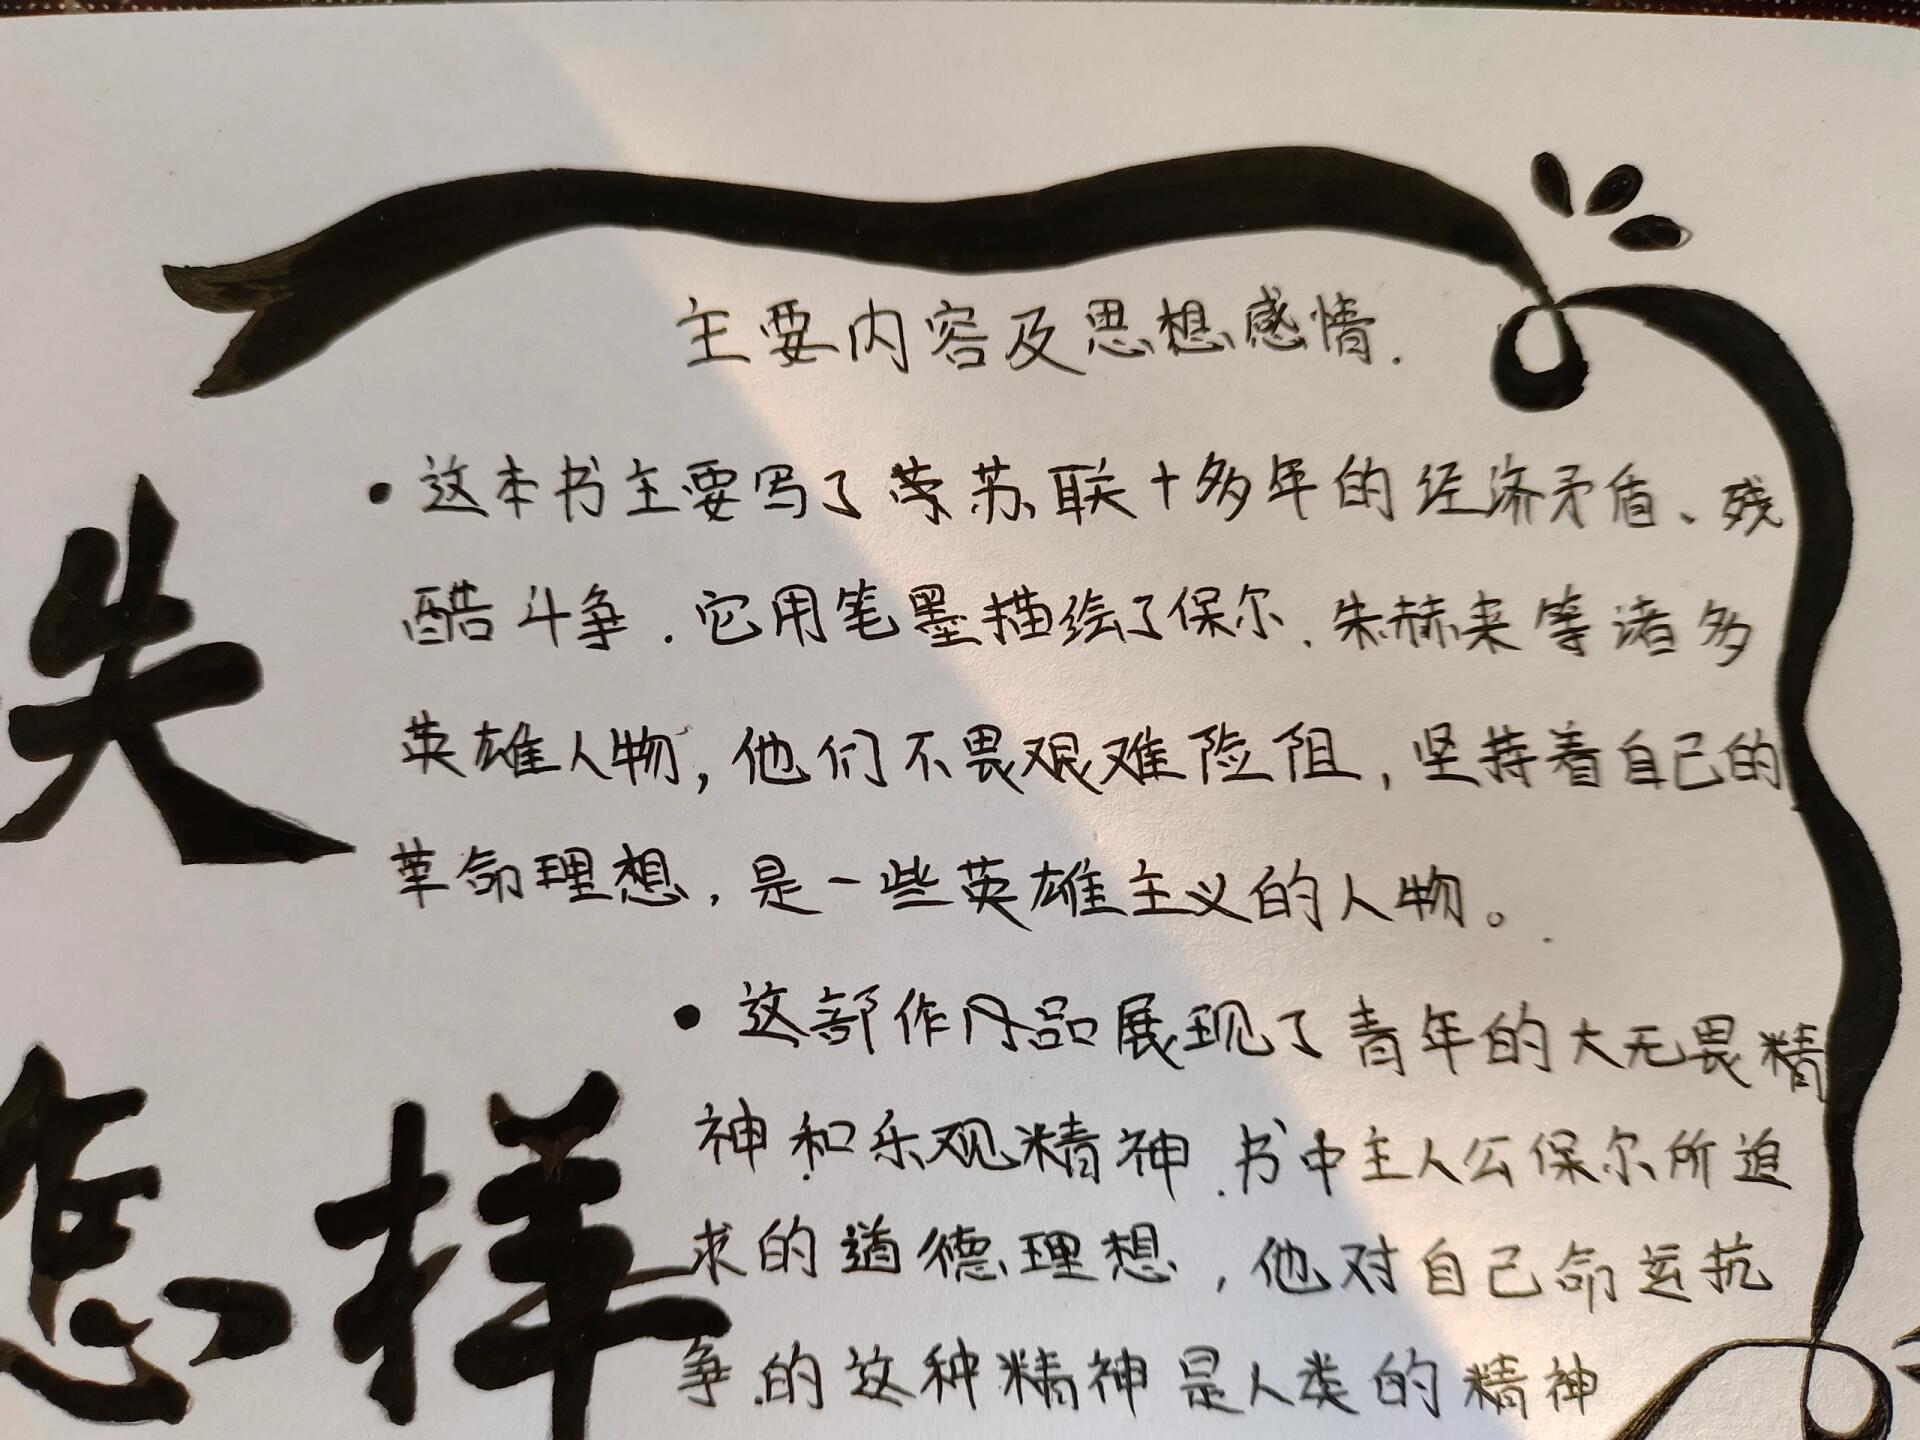 主要内容及思想感情.
•这本书主要写了苏联十多年的经济矛盾、残
酷斗争.它用笔墨描绘了保尔.朱赫来等诸多
英雄人物,他们不畏艰难险阻,坚持着自己的
革命理想,是一些英雄主义的人物。
•这部作品展现了青年的大无畏精
神和乐观精神.书中主人公保尔所追
求的道德理想,他对自己命运抗
争的这种精神是人类的精神
失
怎样